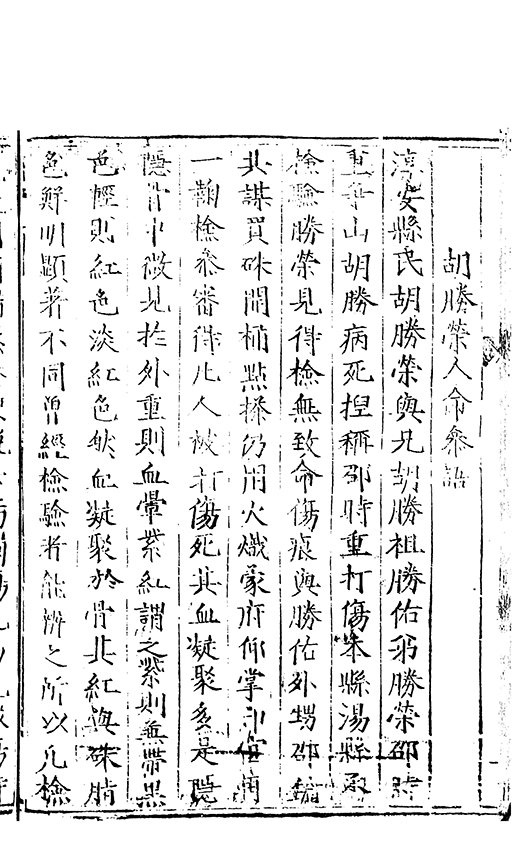 胡勝榮人命參語
淳安縣民胡勝榮與兄胡勝祖勝佑弟勝榮邵時
重爭山胡勝病死揑稱邵時重打傷本縣湯縣丞
檢驗勝榮見得檢無致命傷痕與勝佑外甥邵鎬
共謀買硃開桶點搽仍用火熾蒙府仰掌印官開
一鞠檢參審得凡人被打傷死其血凝聚多是隱
隱骨中微見於外重則血暈紫紅謂之紫則兼帶黑
色輕則紅色淡紅色然血凝聚於骨其紅與硃脂
色鮮明顯著不同曾經檢驗者能辨之所以凡檢